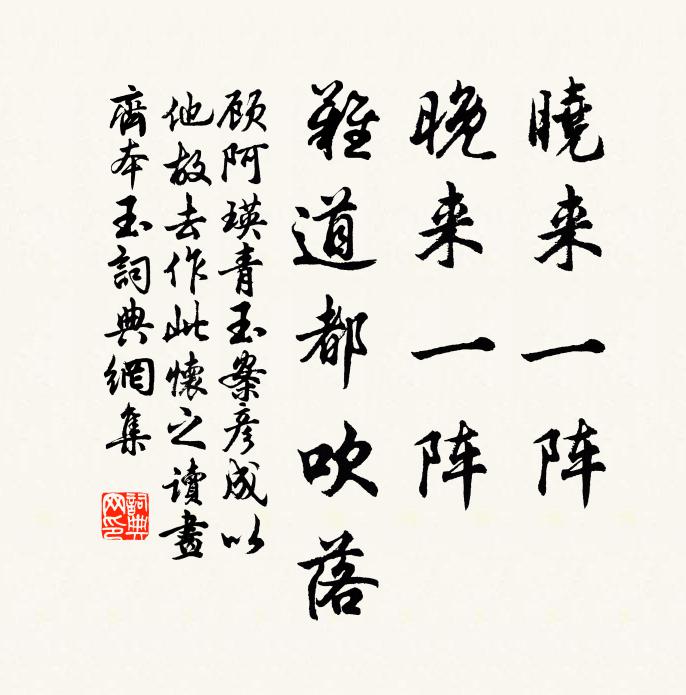 曉来一阵
晚来一阵
難道都吹落
顾阿瑛青玉案彦成以
他故去作此懷之讀畫
齋本玉詞典網集
詞典网印